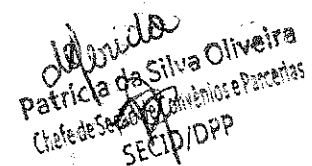 deferido
Patrícia da Silva Oliveira
Chefe de Seção de Convênios e Parcerias
SECID/DPP